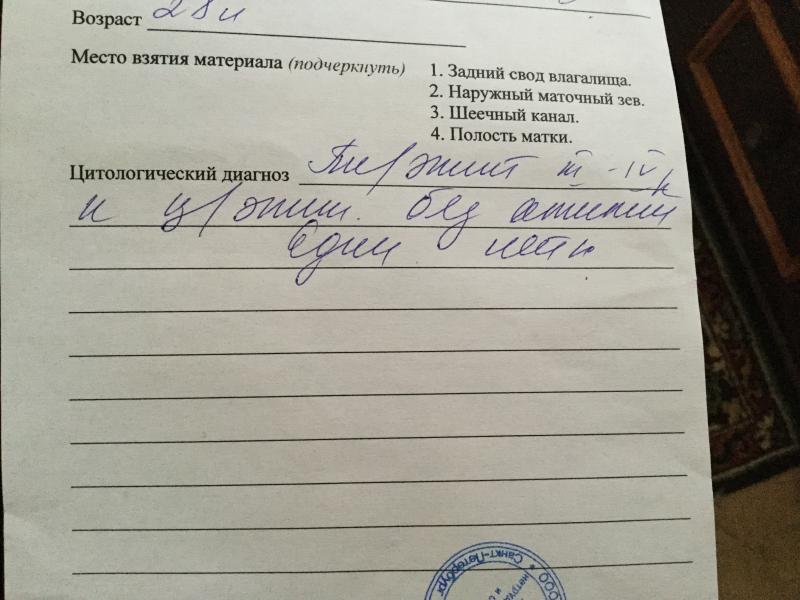 Возраст 28 л
Место взятия материала (подчеркнуть)
1. Задний свод влагалища.
2. Наружный маточный зев.
3. Шеечный канал.
4. Полость матки.
Цитологический диагноз Пл/эпит III - IV
и ц/эпит. без атипии
Един лейк
Санкт-Петербург * ООО